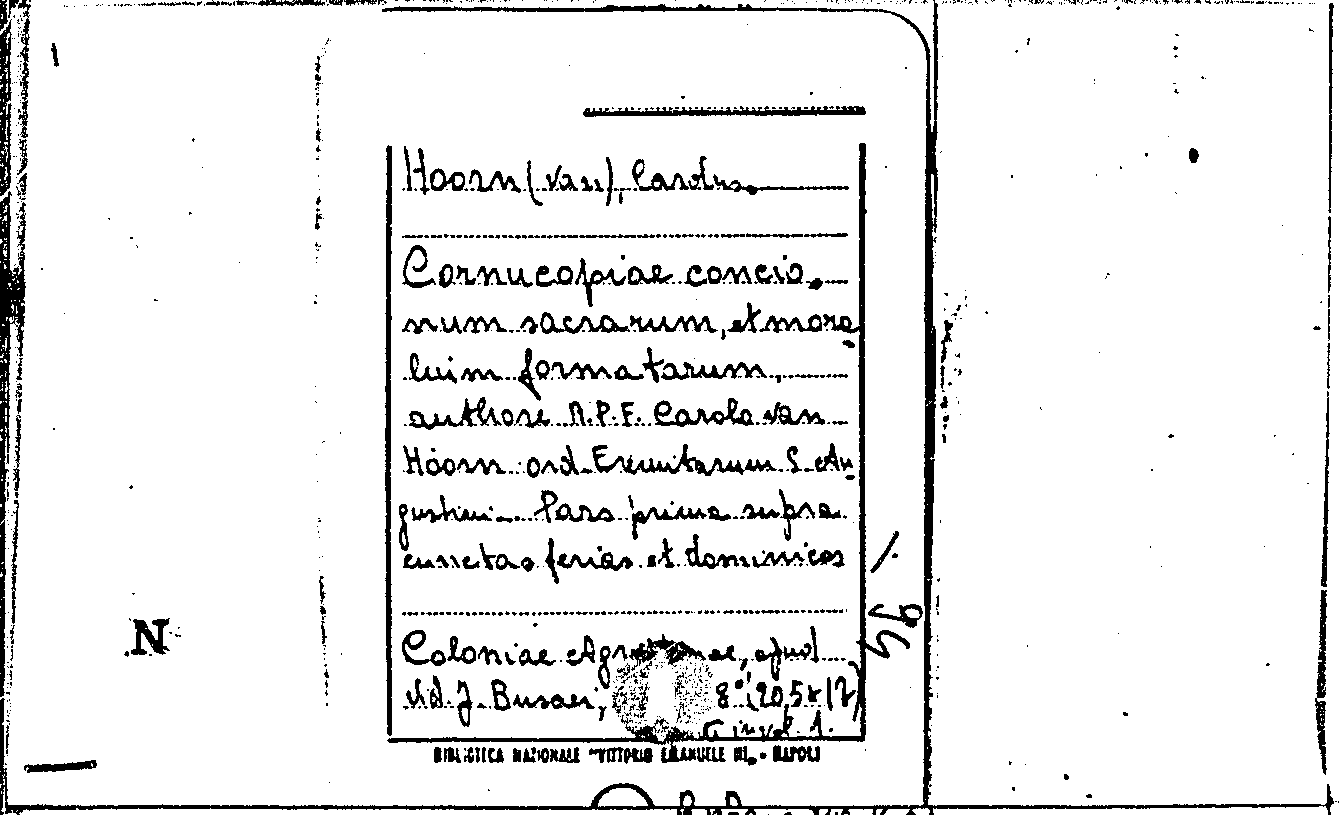 Hoorn (van), Carolus.
Cornucopiae concio-
num sacrarum, et mora-
luim formatarum,
authore R.P.F. Carolo van
Hoorn ord. Eremitarum S. Au-
gustini. Pars prima supra
cunctas ferias et dominicas
Coloniae apud
vid. J. Busaei, 8° (20,5x17)
in vol. 1.
94
N
BIBLIOTECA NAZIONALE "VITTORIO EMANUELE III" - NAPOLI